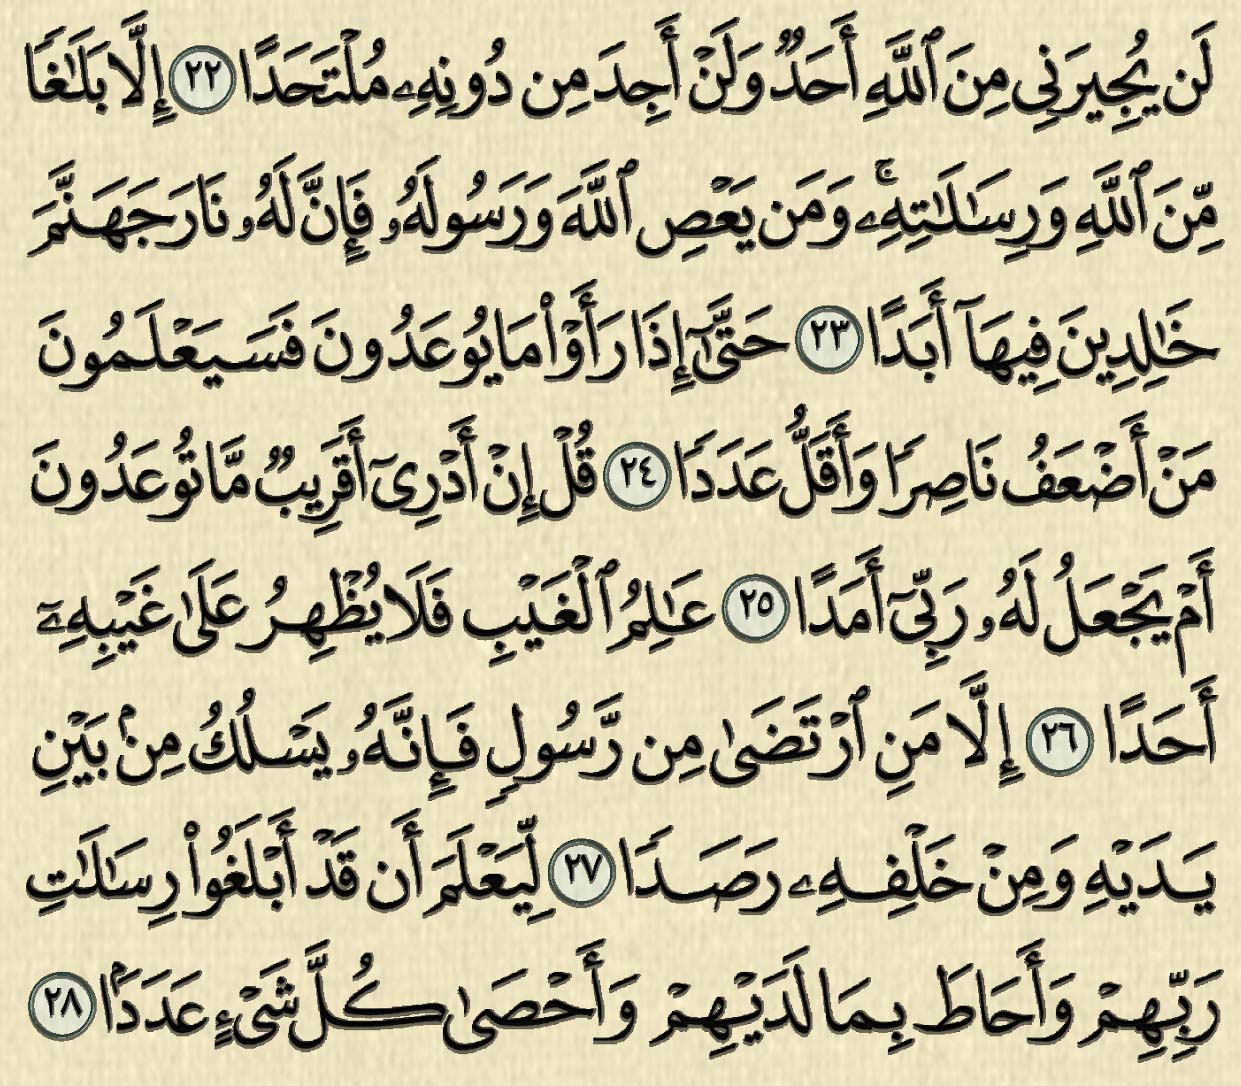 لَن يُجِيرَنِى مِنَ ٱللَّهِ أَحَدٌ وَلَنْ أَجِدَ مِن دُونِهِۦ مُلْتَحَدًا ٢٢ إِلَّا بَلَٰغًا
مِّنَ ٱللَّهِ وَرِسَٰلَٰتِهِۦۚ وَمَن يَعْصِ ٱللَّهَ وَرَسُولَهُۥ فَإِنَّ لَهُۥ نَارَ جَهَنَّمَ
خَٰلِدِينَ فِيهَآ أَبَدًا ٢٣ حَتَّىٰٓ إِذَا رَأَوْا۟ مَا يُوعَدُونَ فَسَيَعْلَمُونَ
مَنْ أَضْعَفُ نَاصِرًا وَأَقَلُّ عَدَدًا ٢٤ قُلْ إِنْ أَدْرِىٓ أَقَرِيبٌ مَّا تُوعَدُونَ
أَمْ يَجْعَلُ لَهُۥ رَبِّىٓ أَمَدًا ٢٥ عَٰلِمُ ٱلْغَيْبِ فَلَا يُظْهِرُ عَلَىٰ غَيْبِهِۦٓ
أَحَدًا ٢٦ إِلَّا مَنِ ٱرْتَضَىٰ مِن رَّسُولٍ فَإِنَّهُۥ يَسْلُكُ مِنۢ بَيْنِ
يَدَيْهِ وَمِنْ خَلْفِهِۦ رَصَدًا ٢٧ لِّيَعْلَمَ أَن قَدْ أَبْلَغُوا۟ رِسَٰلَٰتِ
رَبِّهِمْ وَأَحَاطَ بِمَا لَدَيْهِمْ وَأَحْصَىٰ كُلَّ شَىْءٍ عَدَدًۢا ٢٨